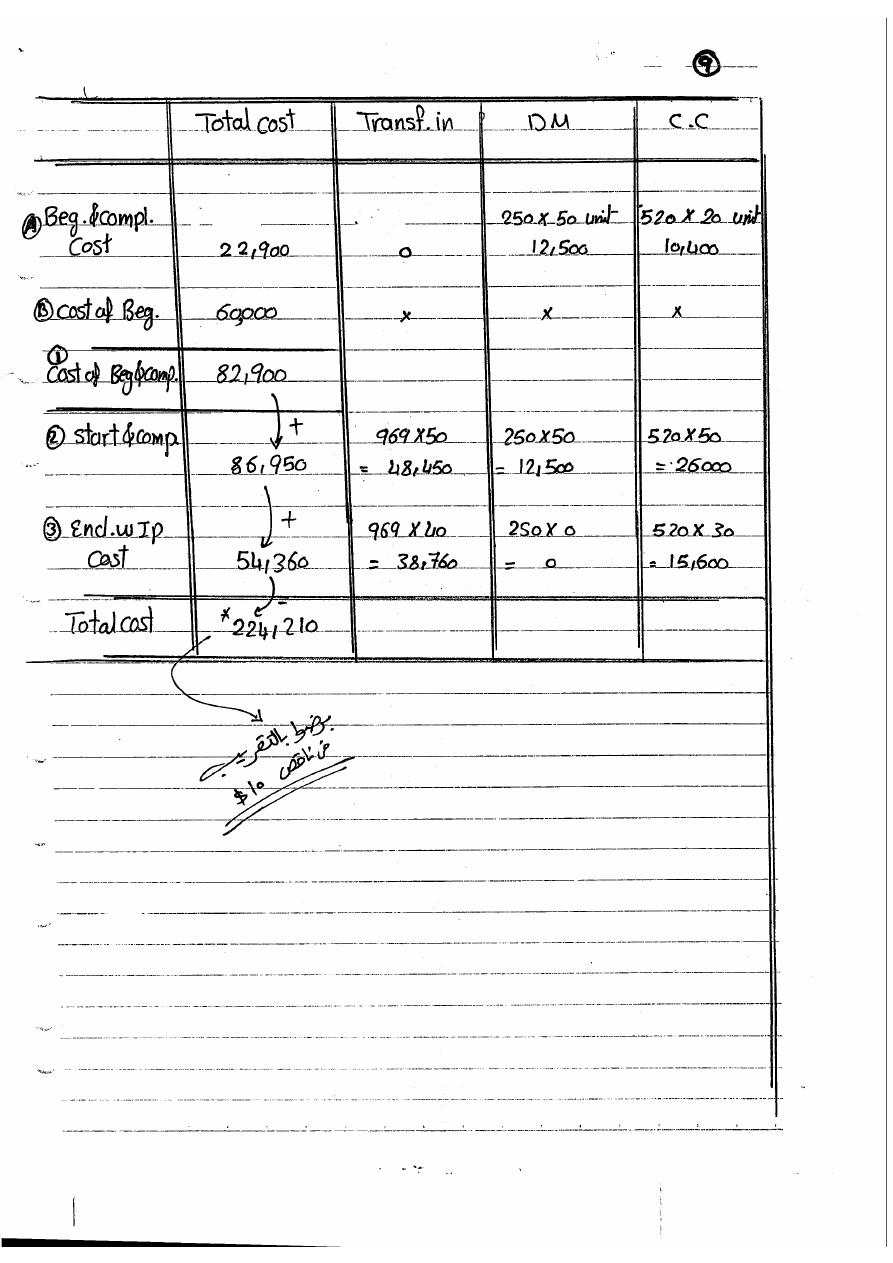 9
Total cost Transf. in DM C.C
Ⓐ Beg. & compl. 250 X 50 unit 520 X 20 unit
Cost 22,900 0 12,500 10,400
Ⓑ cost of Beg. 60,000 x x x
①
Cost of Beg & comp. 82,900
② Start & comp. + 969 X 50 250 X 50 520 X 50
86,950 = 48,450 = 12,500 = 26000
③ End. w Ip + 969 X 40 250 X 0 520 X 30
Cost 54,360 = 38,760 = 0 = 15,600
=
Total cost * 224,210
بالتقريب
ناقص ١٠ $